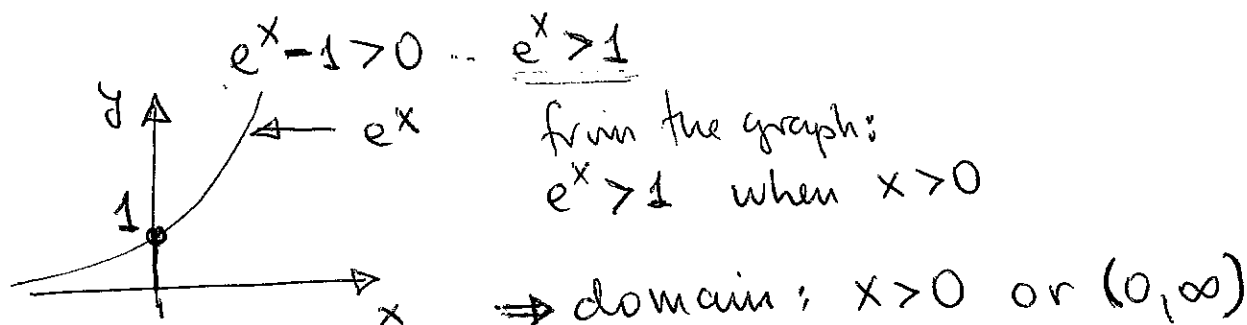 e^x - 1 > 0 .. e^x > 1
y
e^x
from the graph:
1
e^x > 1 when x > 0
x
⇒ domain: x > 0 or (0, ∞)